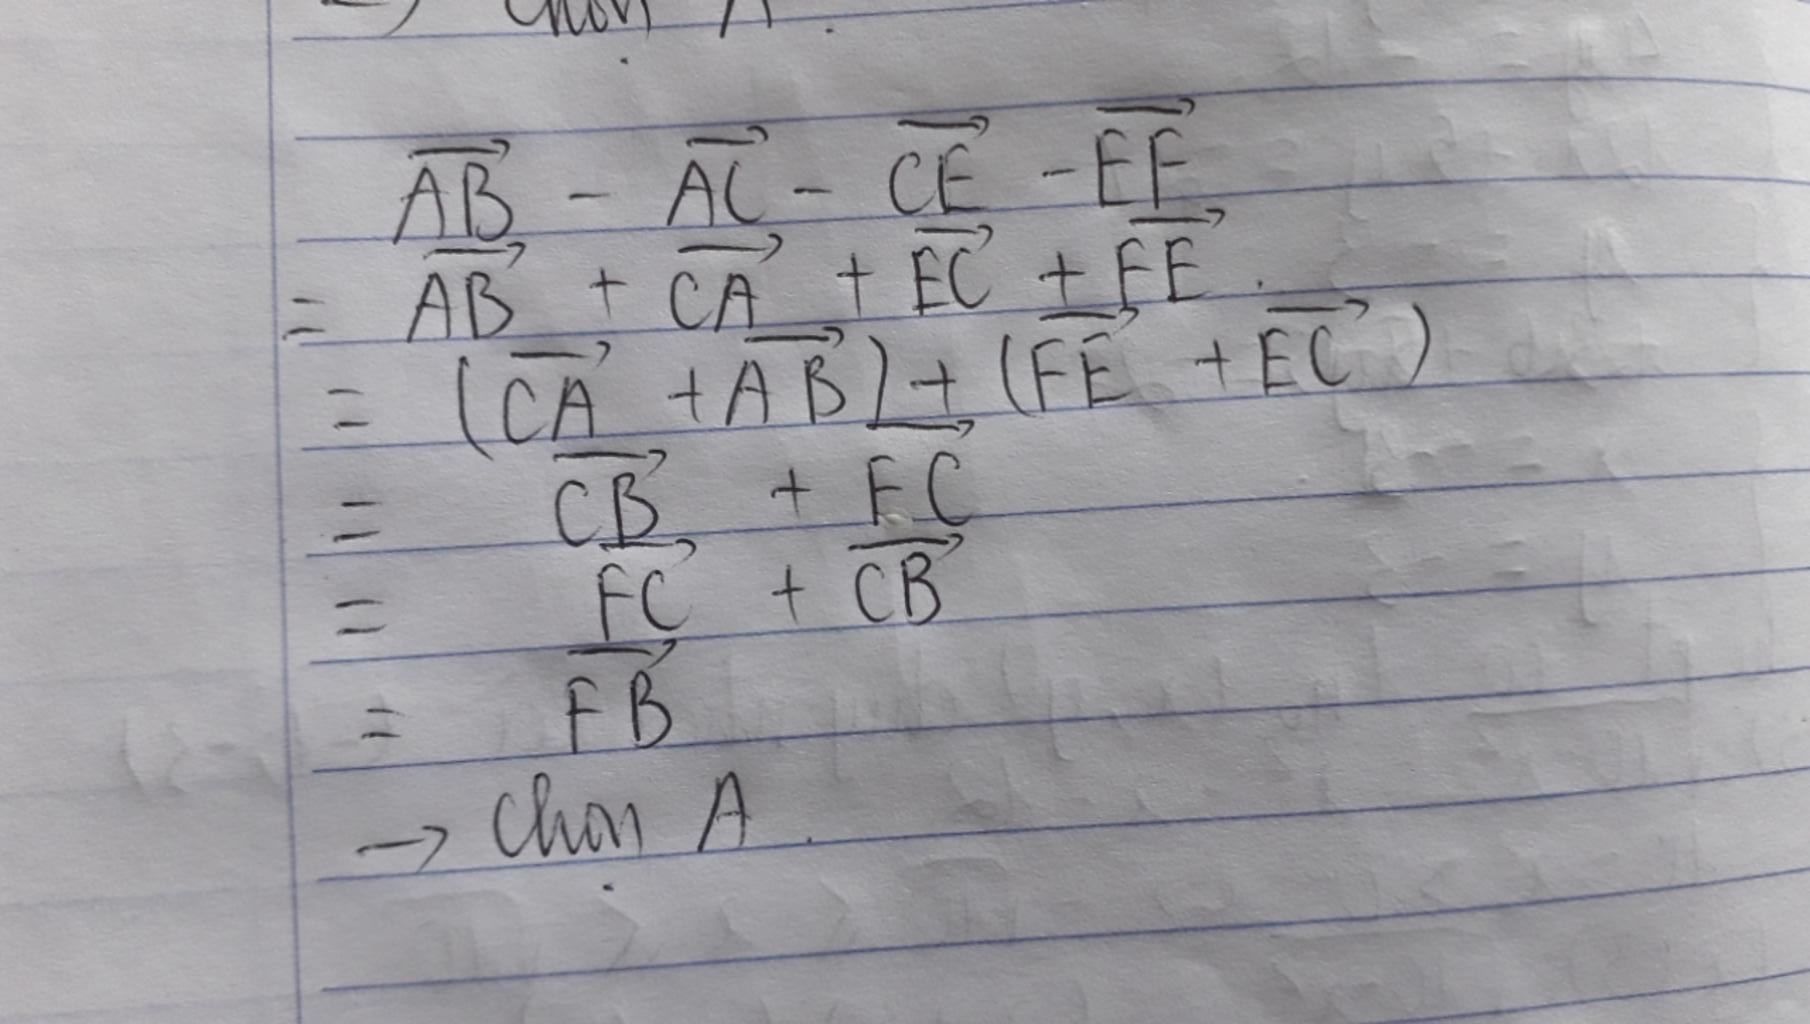 → Chọn A.
$\overrightarrow{AB} - \overrightarrow{AC} - \overrightarrow{CE} - \overrightarrow{EF}$
$= \overrightarrow{AB} + \overrightarrow{CA} + \overrightarrow{EC} + \overrightarrow{FE}.$
$= (\overrightarrow{CA} + \overrightarrow{AB}) + (\overrightarrow{FE} + \overrightarrow{EC})$
$= \overrightarrow{CB} + \overrightarrow{FC}$
$= \overrightarrow{FC} + \overrightarrow{CB}$
$= \overrightarrow{FB}$
→ Chọn A.